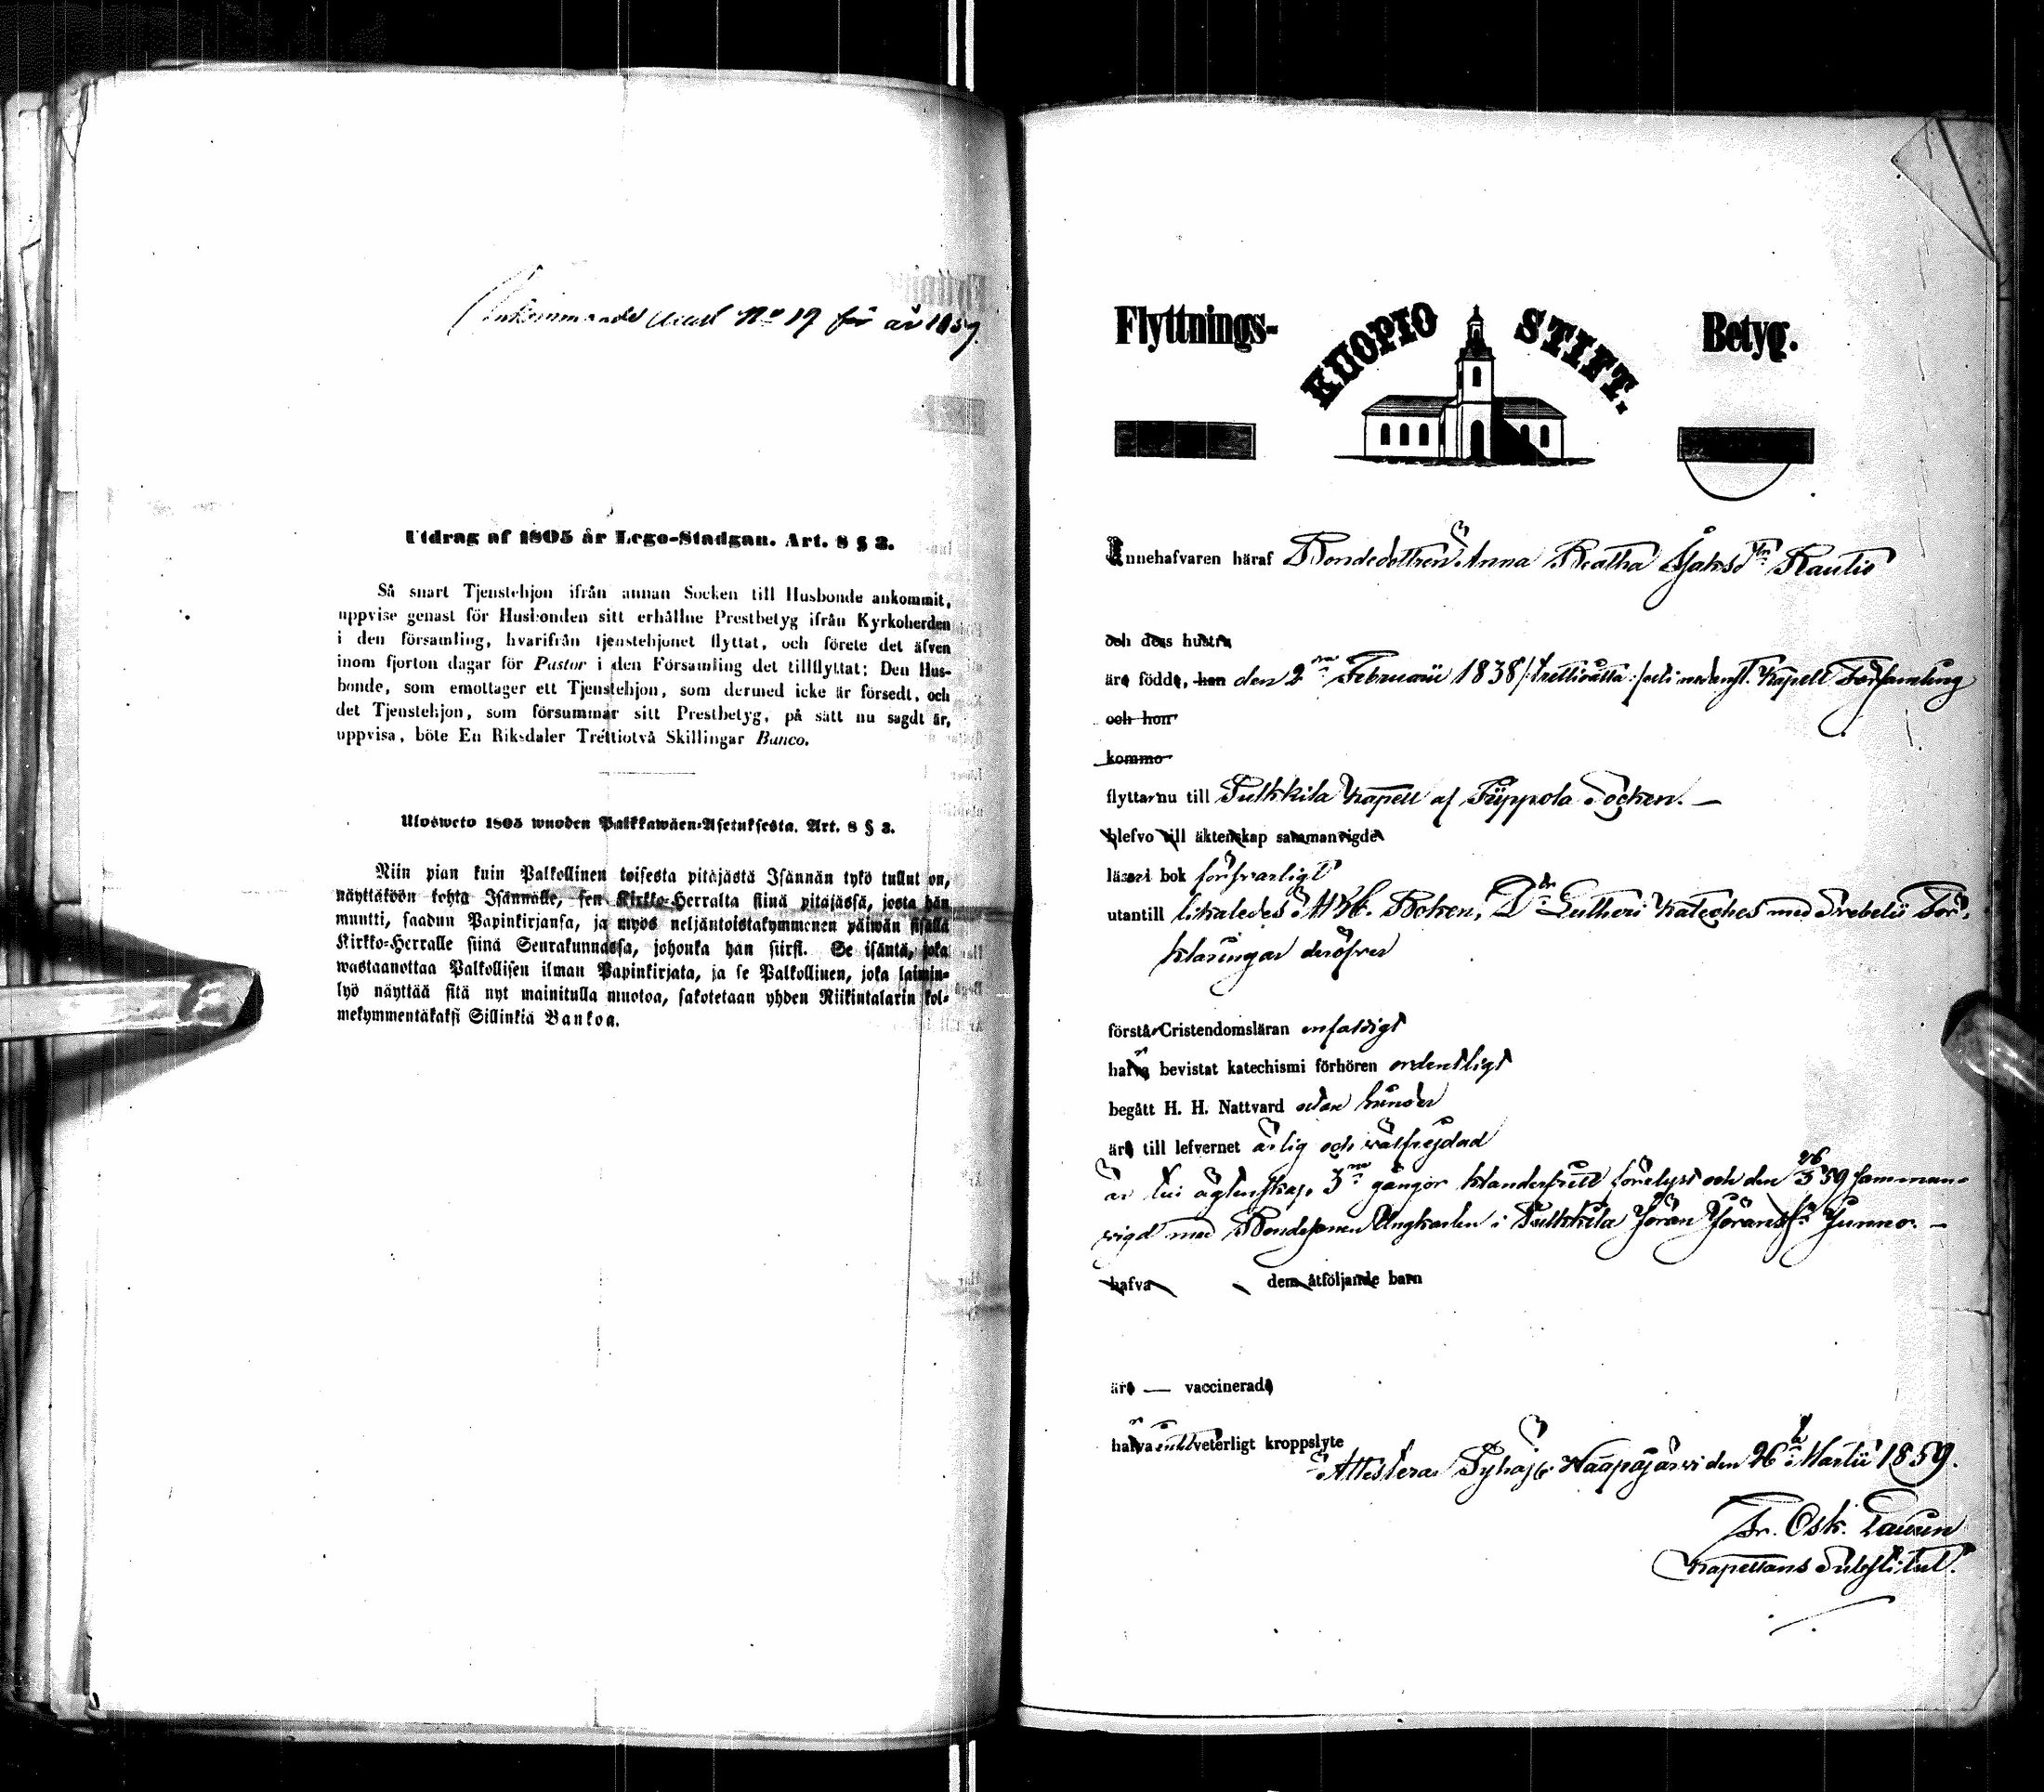 Inkommande und No 19 för år 1859.
Utdrag af 1805 år Lego-Stadgan. Art. 8 § 3.
Så snart Tjenstehjon ifrån annan Socken till Husbonde ankommit,
uppvise genast för Husbonden sitt erhållne Prestbetyg ifrån Kyrkoherden
i den församling, hvarifrån tjenstehjonet flyttat, och förete det äfven
inom fjorton dagar för Pastor i den Församling det tillflyttat; Den Hus-
bonde, som emottager ett Tjenstehjon, som dermed icke är försedt, och
det Tjenstehjon, som försummar sitt Prestbetyg, på sätt nu sagdt är,
uppvisa, böte En Riksdaler Trettiotvå Skillingar Banco.
Ulosweto 1805 wuoden Palkkawäen-Asetuksesta. Art. 8 § 3.
Niin pian kuin Palkollinen toisesta pitäjästä Isännän tykö tullut on,
näyttäköön kohta Isännälle, sen Kirkko-Herralta siinä pitäjässä, josta hän
muutti, saadun Papinkirjansa, ja myös neljäntoistakymmenen päiwän sisällä
Kirkko-Herralle siinä Seurakunnassa, johonka hän siirsi. Se isäntä, joka
wastaanottaa Palkollisen ilman Papinkirjata, ja se Palkollinen, joka laimin-
lyö näyttää sitä nyt mainitulla muotoa, sakotetaan yhden Riikintalarin kol-
mekymmentäkaksi Sillinkiä Bankoa.
Flyttnings- KUOPIO STIFT. Betyg.
Innehafvaren häraf Bondedottren Anna Beatha Jakobsdr Rautio
och dess hustru
äro födde, han den 2 Februarii 1838 /:trettioåtta:/ uti nedanst. Kapell Församling
och hon
kommo
flyttar nu till Pulkkila Kapell af Piippola Socken. —
blefvo till äktenskap sammanvigde
läser i bok försvarligt
utantill likaledes ABC Boken, Dr Lutheri Kateches med Svebelii För-
klaringar deröfver
förstår Cristendomsläran enfaldigt
hafva bevistat katechismi förhören ordentligt
begått H. H. Nattvard utan hinder
äro till lefvernet ärlig och välfrejdad
är till ägtenskap 3ne gångor klanderfritt förelyst och den 26/3 59 samman-
vigd med Bondesonen Ungkarlen i Pulkkila Jöran Jöransson Junno. —
hafva dem åtföljande barn
äro — vaccinerade
hafva intet veterligt kroppslyte
Attesterar Pyhäj. Haapajärvi den 26 Martii 1859.
Fr. Osk. Laurin
Kapellans Substitut.